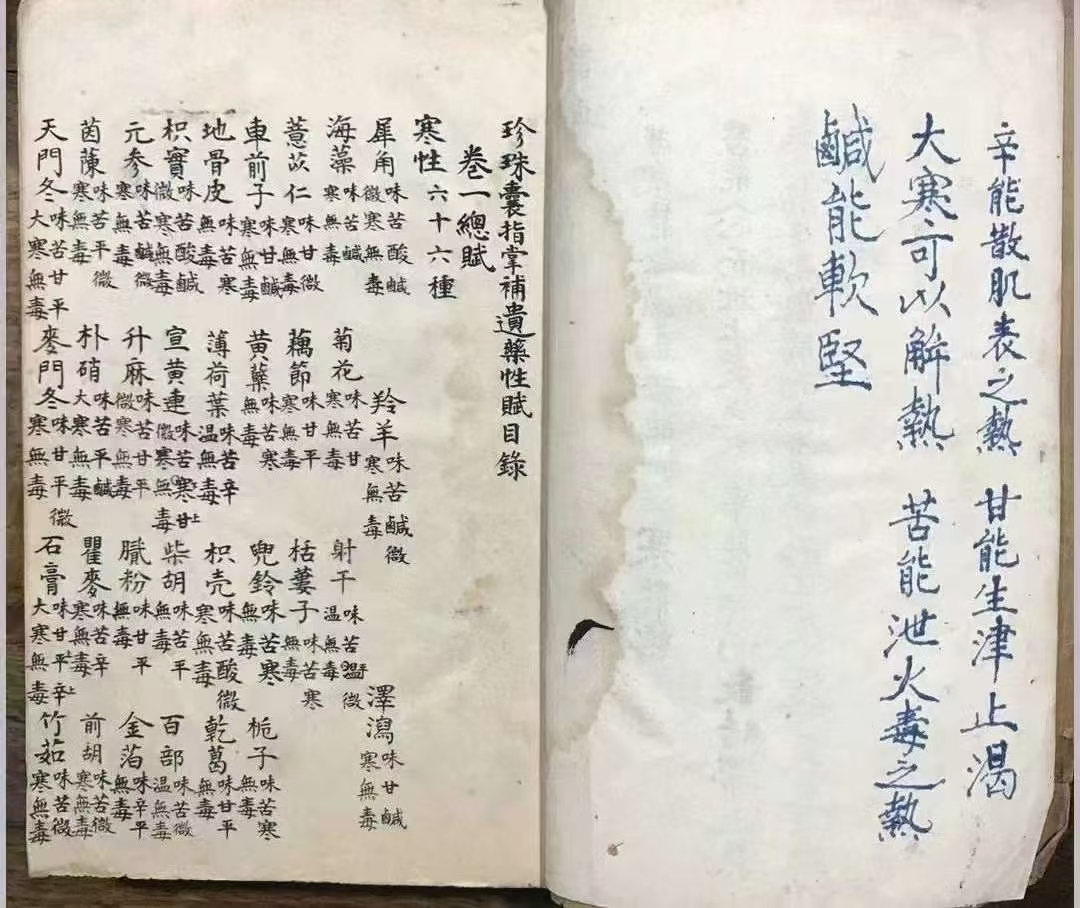 辛能散肌表之熱 甘能生津止渴
大寒可以解熱 苦能泄火毒之熱
鹹能軟堅
珍珠囊指掌補遺藥性賦目錄
卷一總賦
寒性六十六種
犀角 味苦酸鹹微寒無毒 羚羊 味苦鹹微寒無毒 澤瀉 味甘鹹寒無毒
海藻 味苦鹹寒無毒 菊花 味苦甘寒無毒 射干 味苦平微溫無毒
薏苡仁 味甘微寒無毒 藕節 味甘平寒無毒 栝蔞子 味苦寒無毒
車前子 味甘鹹寒無毒 黃蘗 味苦寒無毒 兜鈴 味苦寒無毒 梔子 味苦寒無毒
地骨皮 味苦寒無毒 薄荷葉 味苦辛溫無毒 枳壳 味苦酸微寒無毒 乾葛 味甘平無毒
枳實 味苦酸鹹微寒無毒 宣黃連 味苦寒甘上微寒無毒 柴胡 味苦平無毒 百部 味苦微溫無毒
元参 味苦鹹微寒無毒 升麻 味苦甘平微寒無毒 膩粉 味甘平無毒 金箔 味辛平無毒
茵蔯 味苦平微寒無毒 朴硝 味苦平鹹大寒無毒 瞿麥 味苦辛寒無毒 前胡 味苦微寒無毒
天門冬 味苦甘平大寒無毒 麥門冬 味甘平微寒無毒 石膏 味甘平辛上大寒無毒 竹茹 味苦微寒無毒